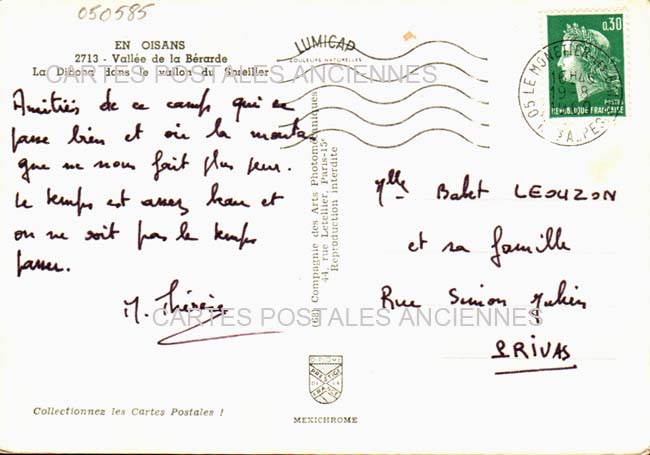 050585
EN OISANS
2713 - Vallée de la Bérarde
La Dibona dans le vallon du Soreiller
LUMICAP
COULEURS NATURELLES
0,30
POSTES
RÉPUBLIQUE FRANÇAISE
05 LE MONETIER-LES-BAINS
19-8
CARTES POSTALES ANCIENNES
Amitiés de ce camp qui se
passe bien et où la monta-
gne ne nous fait plus peur.
Le temps est assez beau et
on ne voit pas le temps
passer.
M. Thérèse
(68) Compagnie des Arts Photomécaniques
44, rue Letellier, Paris-15e
Reproduction interdite
Mlle Babet LEOUZON
et sa famille
Rue Simon
PRIVAS
CARTES POSTALES ANCIENNES
DIPLOME
PRESTIGE
DE LA
FRANCE
Collectionnez les Cartes Postales !
MEXICHROME